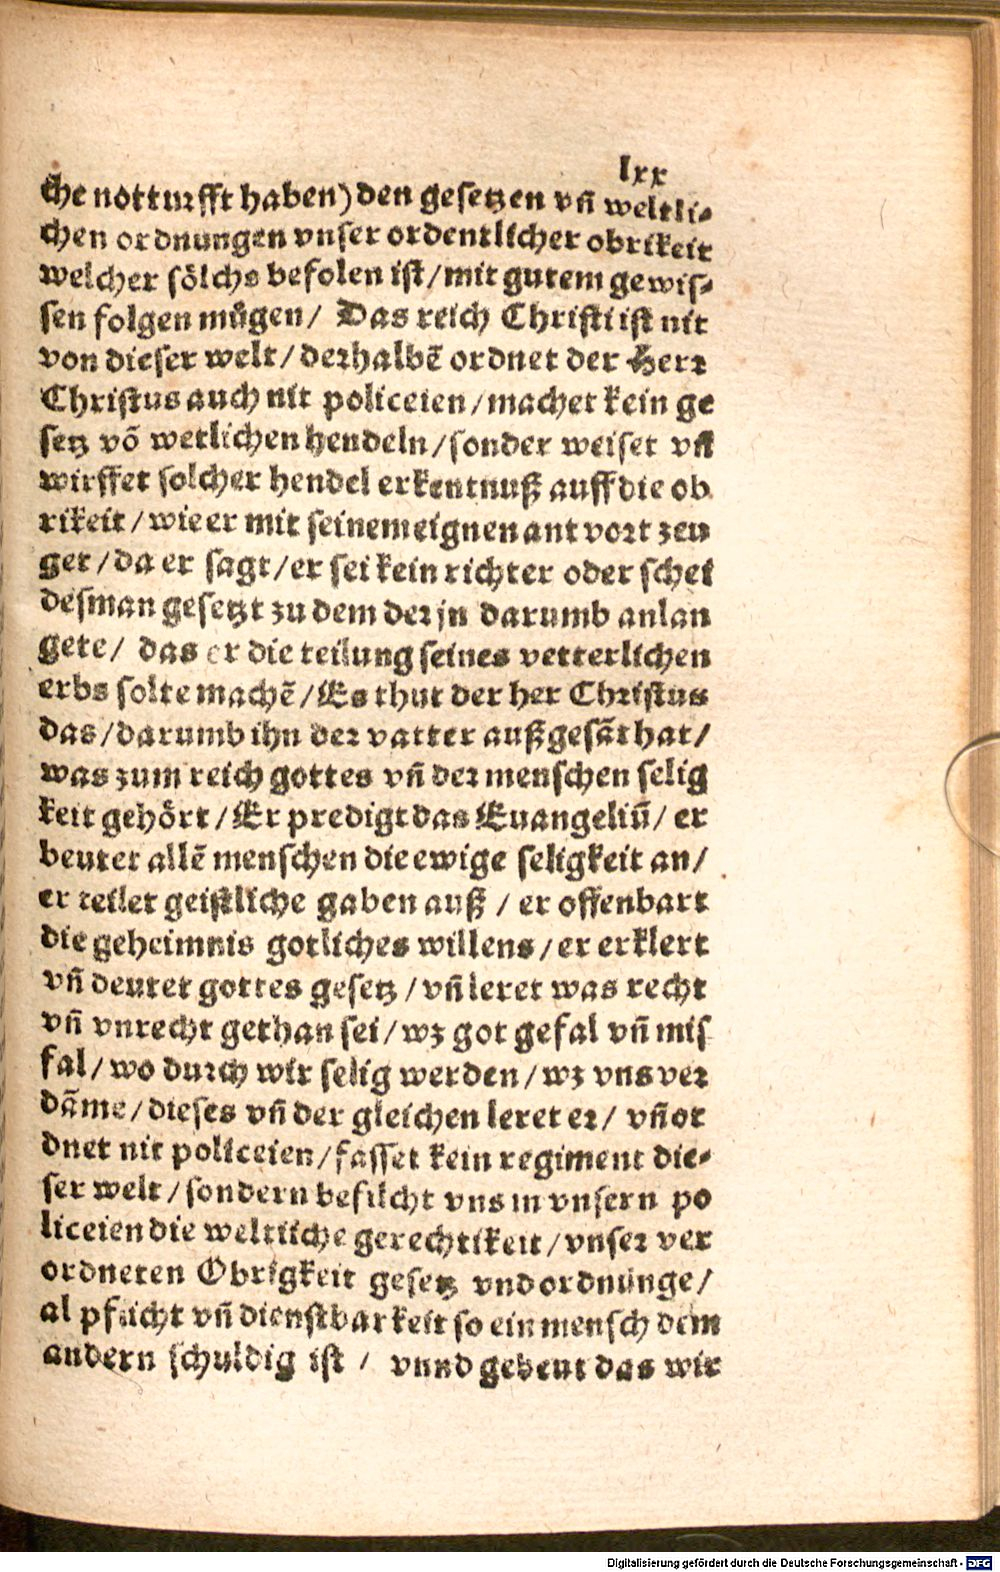 lxx
che notturfft haben) den gesetzen vñ weltli-
chen ordnungen vnser ordentlicher obrikeit
welcher sölchs befolen ist/mit gutem gewis-
sen folgen mügen/ Das reich Christi ist nit
von dieser welt/derhalbē ordnet der Herr
Christus auch nit policeien/machet kein ge
setz vō wetlichen hendeln/sonder weiset vñ
wirffet solcher hendel erkentnuß auff die ob
rikeit/wie er mit seinem eignen antvort zeu
get/da er sagt/er sei kein richter oder schei
desman gesetzt zu dem der jn darumb anlan
gete/ das er die teilung seines vetterlichen
erbs solte machē/Es thut der her Christus
das/darumb ihn der vatter außgesāt hat/
was zum reich gottes vñ der menschen selig
keit gehört/Er predigt das Euangeliū/ er
beutet allē menschen die ewige seligkeit an/
er teilet geistliche gaben auß / er offenbart
die geheimnis gotliches willens/er erklert
vñ deutet gottes gesetz/vñ leret was recht
vñ vnrecht gethan sei/wz got gefal vñ mis
fal/wo durch wir selig werden/wz vns ver
dāme/dieses vñ der gleichen leret er/ vñ or
dnet nit policeien/fasset kein regiment die-
ser welt/sondern befilcht vns in vnsern po
liceien die weltliche gerechtikeit/vnser ver
ordneten Obrigkeit gesetz vnd ordnunge/
al pflicht vñ dienstbarkeit so ein mensch dem
andern schuldig ist / vnnd gebeut das wir
Digitalisierung gefördert durch die Deutsche Forschungsgemeinschaft - DFG